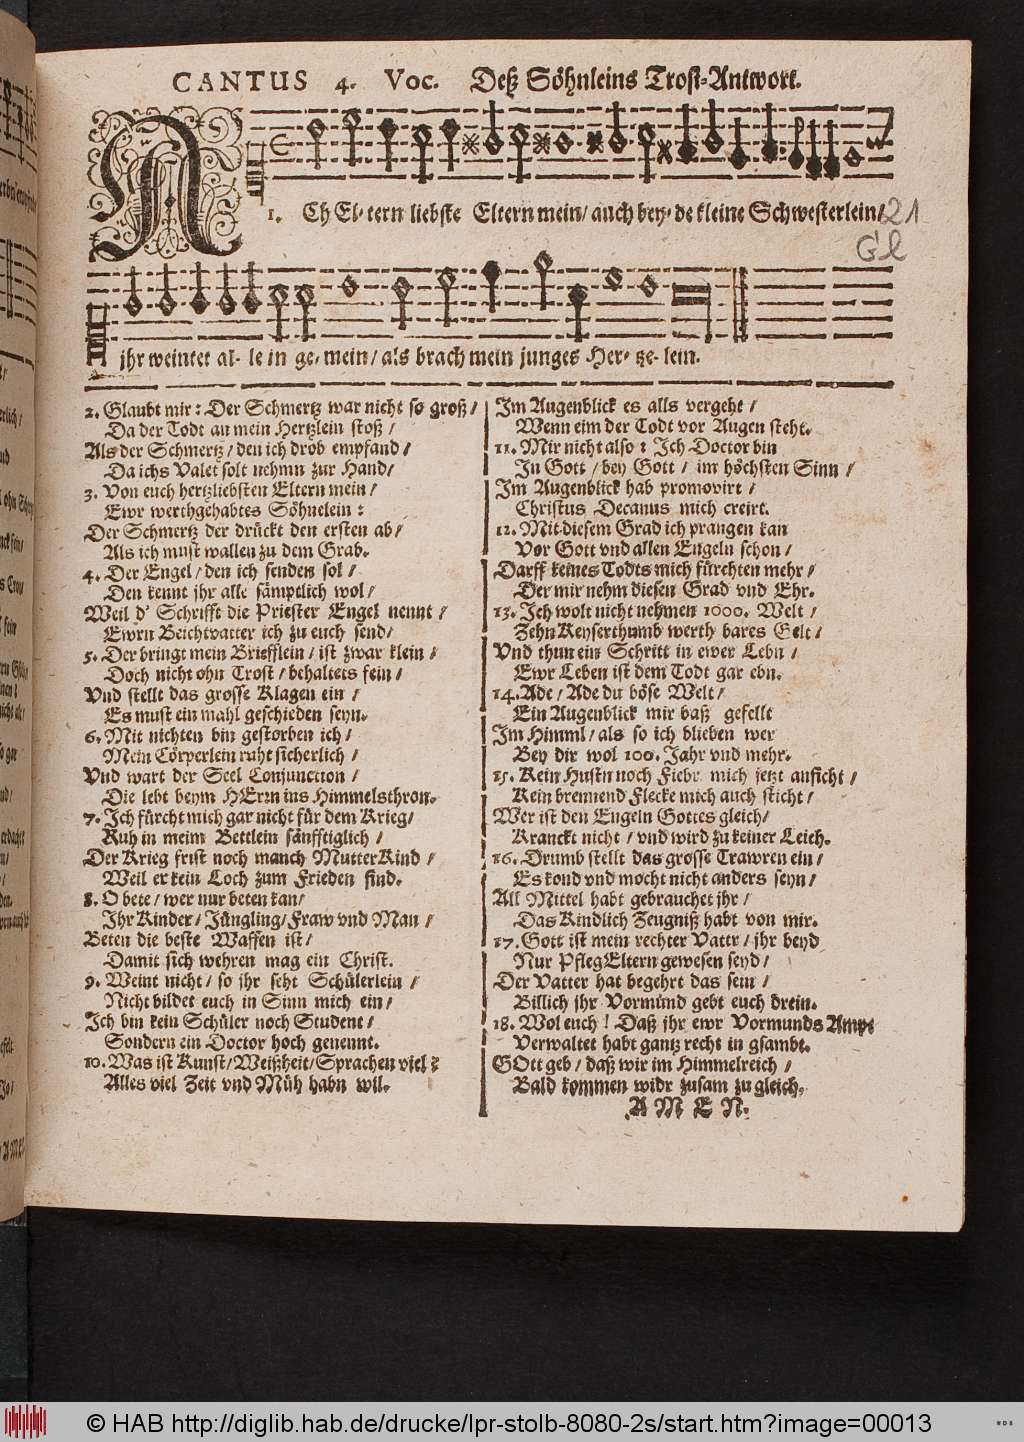 CANTUS 4. Voc. Deß Söhnleins Trost-Antwort.
1. Ch El- tern liebste Eltern mein/ auch bey- de kleine Schwesterlein/
21
Gl
jhr weintet al- le in ge- mein/ als brach mein junges Her- tze- lein.
2. Glaubt mir: Der Schmertz war nicht so groß/
Da der Todt an mein Hertzlein stoß/
Als der Schmertz/ den ich drob empfand/
Da ichs Valet solt nehmn zur Hand/
3. Von euch hertzliebsten Eltern mein/
Ewr werthgehabtes Söhnelein:
Der Schmertz der drückt den ersten ab/
Als ich must wallen zu dem Grab.
4. Der Engel/ den ich senden sol/
Den kennt jhr alle sämptlich wol/
Weil d' Schrifft die Priester Engel nennt/
Ewrn Beichtvatter ich zu euch send/
5. Der bringt mein Briefflein/ ist zwar klein/
Doch nicht ohn Trost/ behaltets fein/
Vnd stellt das grosse Klagen ein/
Es must ein mahl geschieden seyn.
6. Mit nichten bin gestorben ich/
Mein Cörperlein ruht sicherlich/
Vnd wart der Seel Conjunction/
Die lebt beym HErrn ins Himmelsthron.
7. Ich fürcht mich gar nicht für dem Krieg/
Ruh in meim Bettlein sänfftiglich/
Der Krieg frist noch manch MutterKind/
Weil er kein Loch zum Frieden find.
8. O bete/ wer nur beten kan/
Ihr Kinder/ Jüngling/ Fraw vnd Man/
Beten die beste Waffen ist/
Damit sich wehren mag ein Christ.
9. Weint nicht/ so jhr seht Schülerlein/
Nicht bildet euch in Sinn mich ein/
Ich bin kein Schüler noch Student/
Sondern ein Doctor hoch genennt.
10. Was ist Kunst/ Weißheit/ Sprachen viel?
Alles viel Zeit vnd Müh habn wil.
Im Augenblick es alls vergeht/
Wenn eim der Todt vor Augen steht.
11. Mir nicht also: Ich Doctor bin
In Gott/ bey Gott/ im höchsten Sinn/
Im Augenblick hab promovirt/
Christus Decanus mich creirt.
12. Mit diesem Grad ich prangen kan
Vor Gott vnd allen Engeln schon/
Darff keines Todts mich fürchten mehr/
Der mir nehm diesen Grad vnd Ehr.
13. Ich wolt nicht nehmen 1000. Welt/
Zehn Keyserthumb werth bares Gelt/
Vnd thun ein Schritt in ewer Lebn/
Ewr Leben ist dem Todt gar ebn.
14. Ade/ Ade du böse Welt/
Ein Augenblick mir baß gefellt
Im Himml/ als so ich blieben wer
Bey dir wol 100. Jahr vnd mehr.
15. Kein Hustn noch Fiebr mich jetzt anficht/
Kein brennend Flecke mich auch sticht/
Wer ist den Engeln Gottes gleich/
Kranckt nicht/ vnd wird zu keiner Leich.
16. Drumb stellt das grosse Trawren ein/
Es kond vnd mocht nicht anders seyn/
All Mittel habt gebrauchet jhr/
Das Kindlich Zeugniß habt von mir.
17. Gott ist mein rechter Vattr/ jhr beyd
Nur PflegEltern gewesen seyd/
Der Vatter hat begehrt das sein/
Billich jhr Vormünd gebt euch drein.
18. Wol euch! Daß jhr ewr Vormunds Ampt
Verwaltet habt gantz recht in gsambt.
GOtt geb/ daß wir im Himmelreich/
Bald kommen widr zusam zu gleich.
AMEN.
© HAB http://diglib.hab.de/drucke/lpr-stolb-8080-2s/start.htm?image=00013